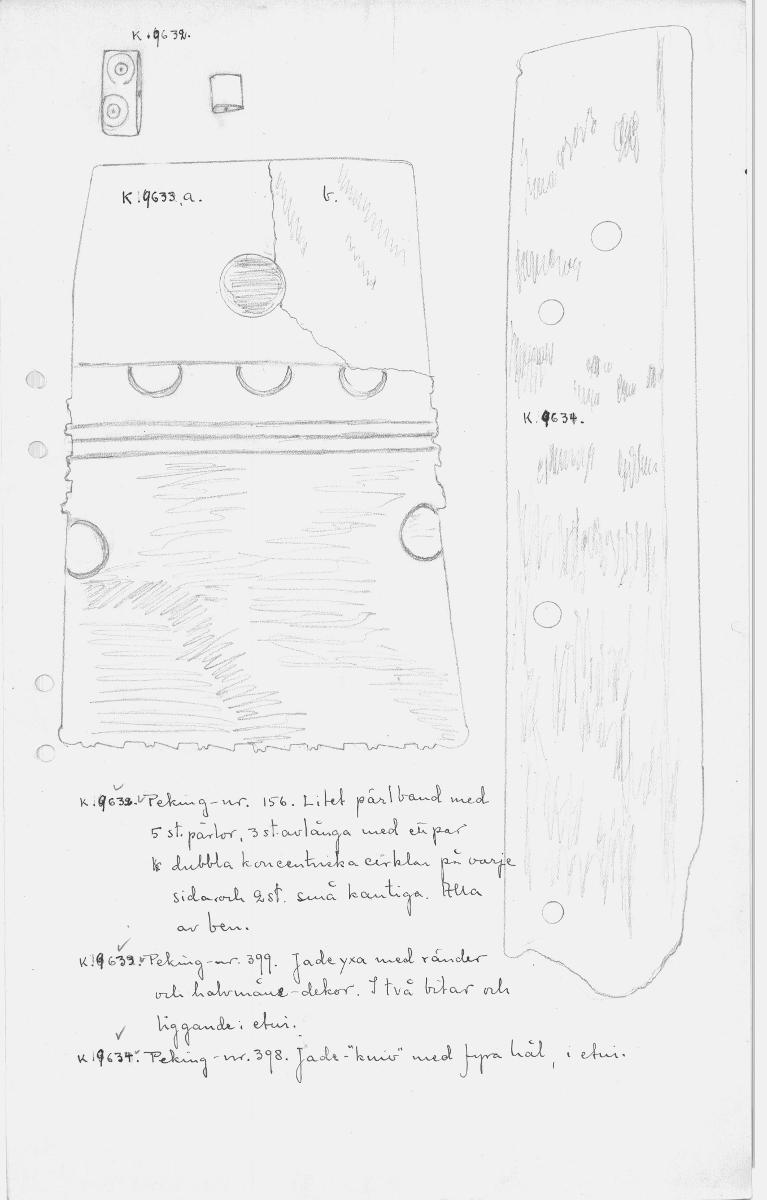 K.9632.
K.9633.a.
b.
K.9634.
K.9632. Peking-nr. 156. Litet pärlband med
5 st. pärlor, 3 st. avlånga med ett par
dubbla koncentriska cirklar på varje
sida och 2 st. små kantiga. Alla
av ben.
K.9633. Peking-nr. 399. Jadeyxa med ränder
och halvmåne-dekor. I två bitar och
liggande i etui.
K.9634. Peking-nr. 398. Jade-"kniv" med fyra hål, i etui.